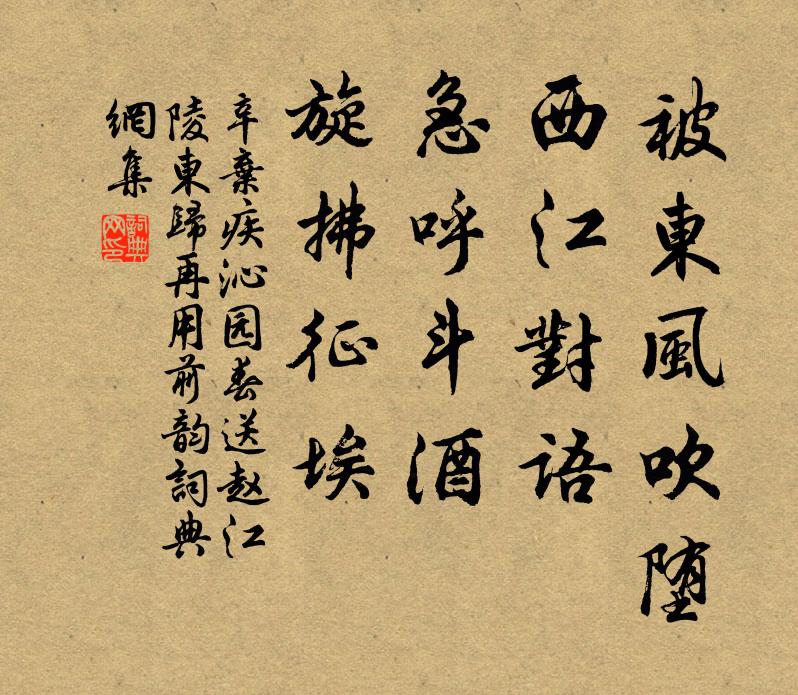 被東風吹堕
西江對語
急呼斗酒
旋拂征埃
辛棄疾沁园春送赵江
陵東歸再用前韵詞典
網集
詞典
网印